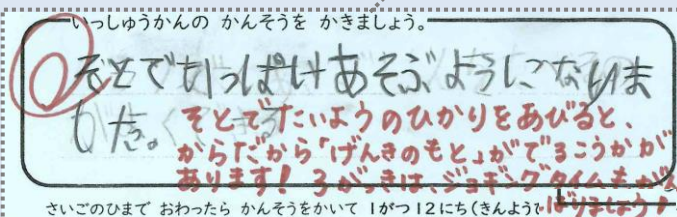 いっしゅうかんの かんそうを かきましょう。
そとでいっぱいあそぶようになりま
した。
そとでたいようのひかりをあびると、
からだから「げんきのもと」がでるこうかが
あります！ 3がっきは、ジョギングタイムもがん
ばりましょう！
さいごのひまで おわったら かんそうをかいて 1がつ12にち(きんよう